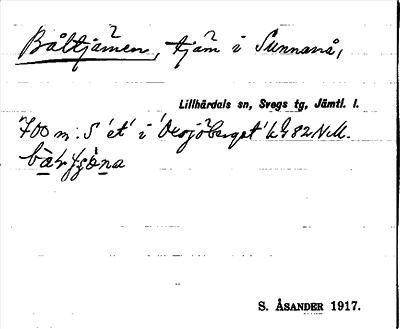 Båltjärnen, tjärn i Sunnanå,
Lillhärdals sn, Svegs tg, Jämtl. l.
700 m. S 'et' i 'Oxsjöberget' 82 N.M.
S. ÅSANDER 1917.